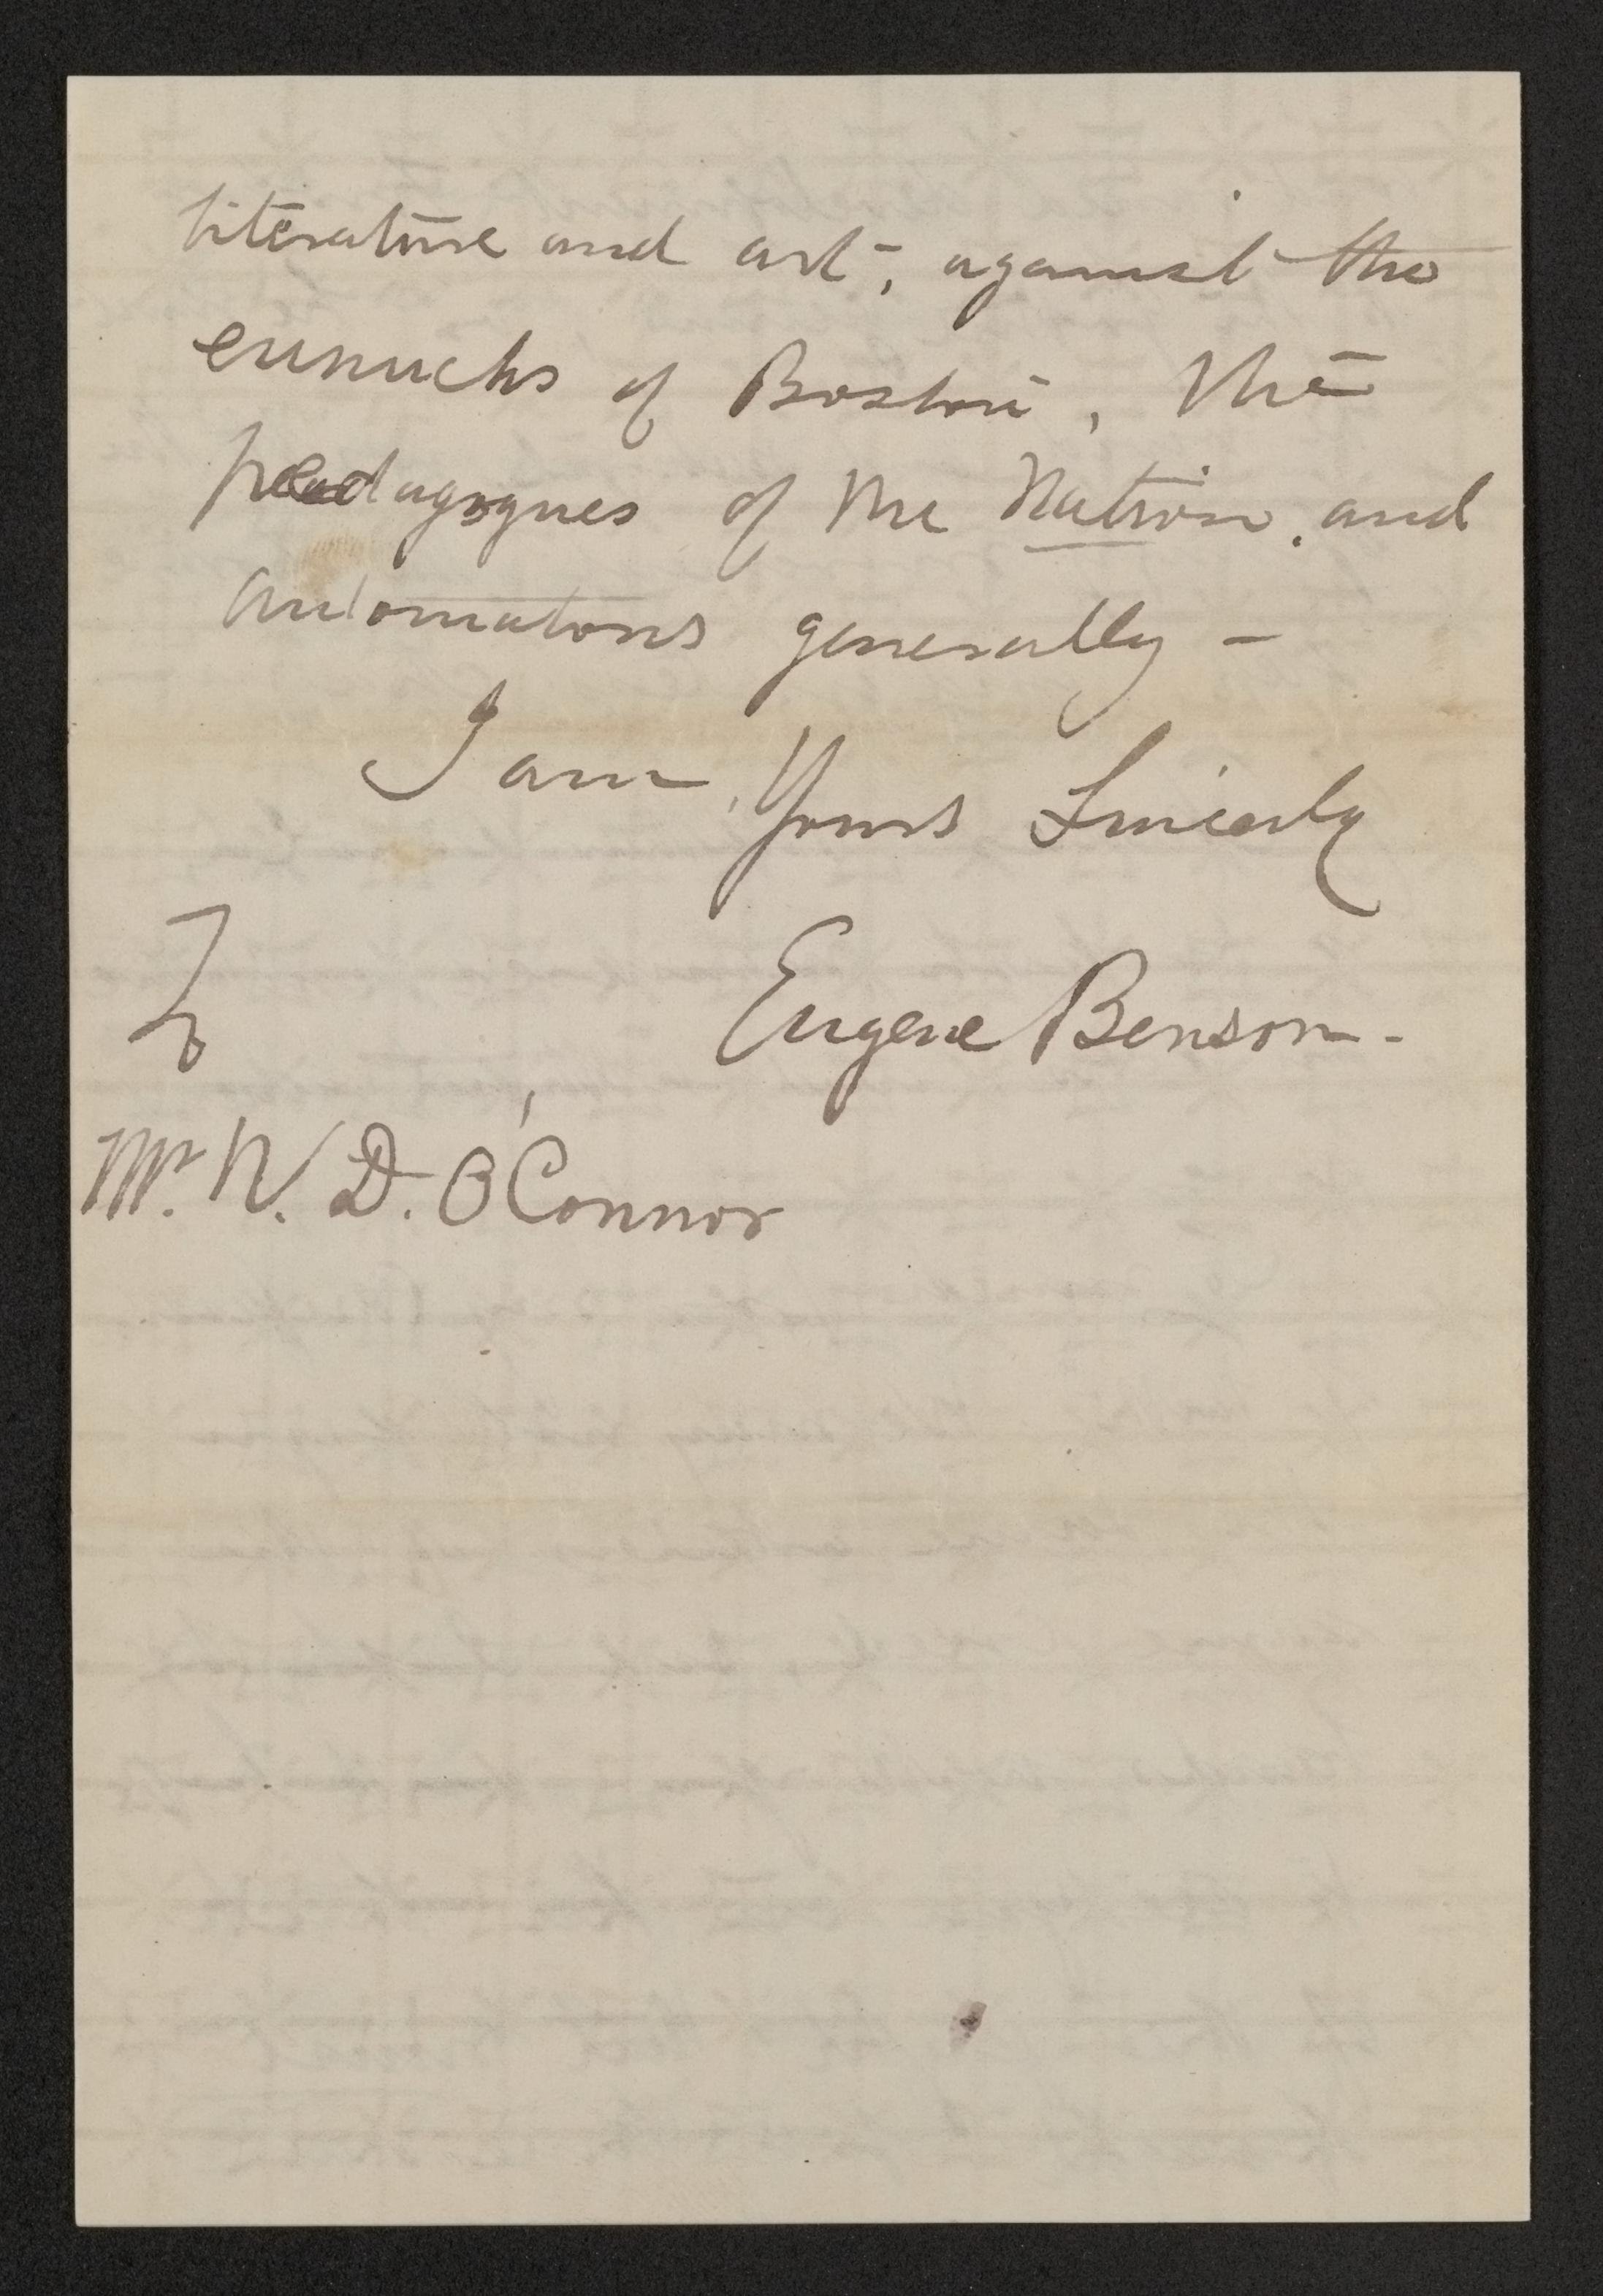 literature and art, against the
eunuchs of Boston, the
pedagogues of the Nation, and
automatons generally -
I am, Yours Sincerely
To
Eugene Benson.
Mr. W. D. O'Connor